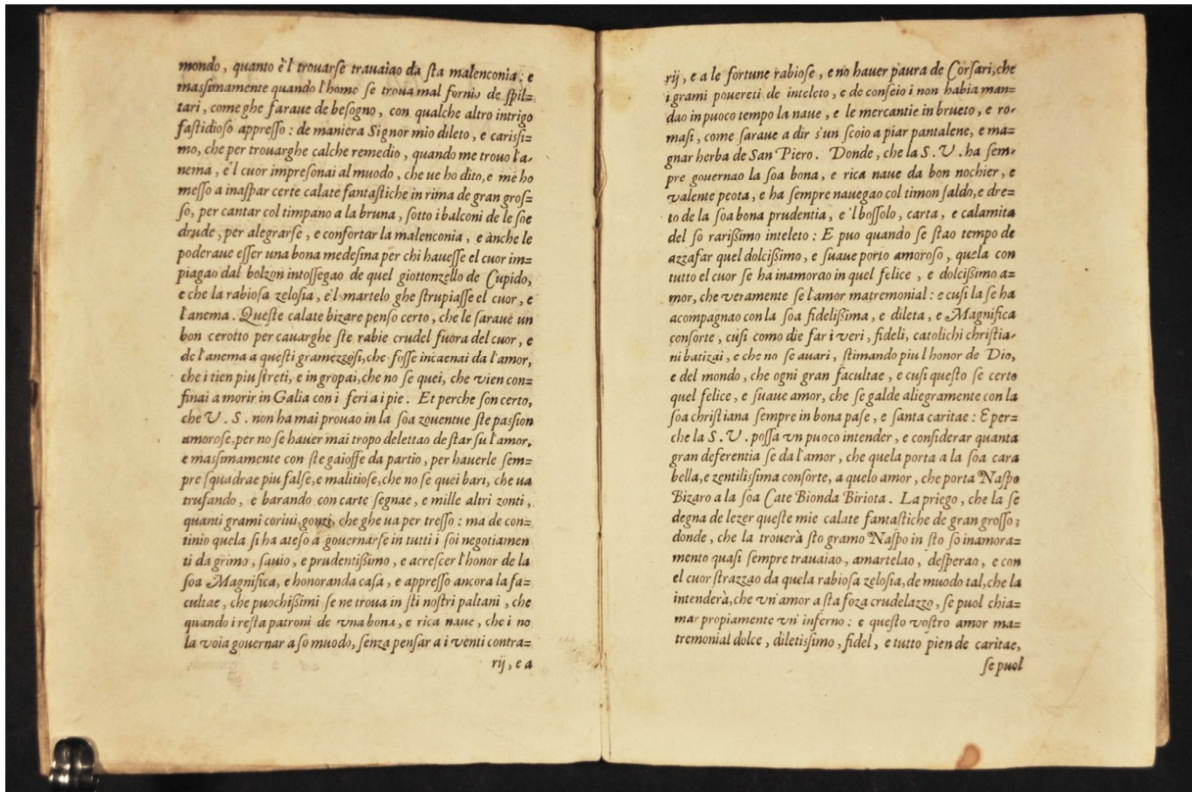 mondo, quanto è'l trouarſe trauaiao da ſta malenconia: e
maſsimamente quando l'homo ſe troua mal fornio de ſpil=
tari, come ghe faraue de beſogno, con qualche altro intrigo
faſtidioſo appreſſo: de maniera Signor mio dileto, e cariſsi=
mo, che per trouarghe calche remedio, quando me trouo l'a=
nema, e'l cuor impreſonai al muodo, che ue ho dito, e me ho
meſſo a inaſpar certe calate fantaſtiche in rima de gran groſ=
ſo, per cantar col timpano a la bruna, ſotto i balconi de le ſoe
drude, per alegrarſe, e confortar la malenconia, e anche le
poderaue eſſer una bona medeſina per chi haueſſe el cuor im=
piagao dal bolzon intoſſegao de quel giottonzello de Cupido,
e che la rabioſa zeloſia, e'l martelo ghe ſtrupiaſſe el cuor, e
l'anema. Queſte calate bizare penſo certo, che le ſaraue un
bon cerotto per cauarghe ſte rabie crudel fuora del cuor, e
de l'anema a queſti gramezzoſi, che foſſe incaenai da l'amor,
che i tien piu ſtreti, e in gropai, che no ſe quei, che vien con=
finai a morir in Galia con i feri a i pie. Et perche ſon certo,
che V. S. non ha mai prouao in la ſoa zouentue ſte paſsion
amoroſe, per no ſe hauer mai tropo delettao de ſtar ſu l'amor,
e maſsimamente con ſte gaioffe da partio, per hauerle ſem=
pre ſquadrae piu falſe, e malitioſe, che no ſe quei bari, che ua
trufando, e barando con carte ſegnae, e mille altri zonti,
quanti grami coriui, gonzi, che ghe ua per treſſo: ma de con=
tinio quela ſi ha ateſo a gouernarſe in tutti i ſoi negotiamen
ti da grimo, ſauio, e prudentiſsimo, e acreſcer l'honor de la
ſoa Magnifica, e honoranda caſa, e appreſſo ancora la fa=
cultae, che puochiſsimi ſe ne troua in ſti noſtri paltani, che
quando i reſta patroni de vna bona, e rica naue, che i no
la voia gouernar a ſo muodo, ſenza penſar a i venti contra=
rij, e a
rij, e a le fortune rabioſe, e no hauer paura de Corſari, che
i grami pouereti de inteleto, e de conſeio i non habia man=
dao in puoco tempo la naue, e le mercantie in brueto, e ro=
maſi, come ſaraue a dir s'un ſcoio a piar pantalene, e ma=
gnar herba de San Piero. Donde, che la S. V. ha ſem=
pre gouernao la ſoa bona, e rica naue da bon nochier, e
valente peota, e ha ſempre nauegao col timon ſaldo, e dre=
to de la ſoa bona prudentia, e'l boſſolo, carta, e calamita
del ſo rariſsimo inteleto: E puo quando ſe ſtao tempo de
azzafar quel dolciſsimo, e ſuaue porto amoroſo, quela con
tutto el cuor ſe ha inamorao in quel felice, e dolciſsimo a=
mor, che veramente ſe l'amor matremonial: e cuſi la ſe ha
acompagnao con la ſoa fideliſsima, e dileta, e Magnifica
conſorte, cuſi como die far i veri, fideli, catolichi chriſtia=
ni batizai, e che no ſe auari, ſtimando piu l'honor de Dio,
e del mondo, che ogni gran facultae, e cuſi queſto ſe certo
quel felice, e ſuaue amor, che ſe galde aliegramente con la
ſoa chriſtiana ſempre in bona paſe, e ſanta caritae: E per=
che la S. V. poſſa vn puoco intender, e conſiderar quanta
gran deferentia ſe da l'amor, che quela porta a la ſoa cara
bella, e zentiliſsima conſorte, a quelo amor, che porta Naſpo
Bizaro a la ſoa Cate Bionda Biriota. La priego, che la ſe
degna de lezer queſte mie calate fantaſtiche de gran groſſo;
donde, che la trouerà ſto gramo Naſpo in ſto ſo inamora=
mento quaſi ſempre trauaiao, amartelao, deſperao, e con
el cuor ſtrazzao da quela rabioſa zeloſia, de muodo tal, che la
intenderà, che vn'amor a ſta foza crudelazzo, ſe puol chia=
mar propiamente vn'inferno: e queſto voſtro amor ma=
tremonial dolce, diletiſsimo, fidel, e tutto pien de caritae,
ſe puol